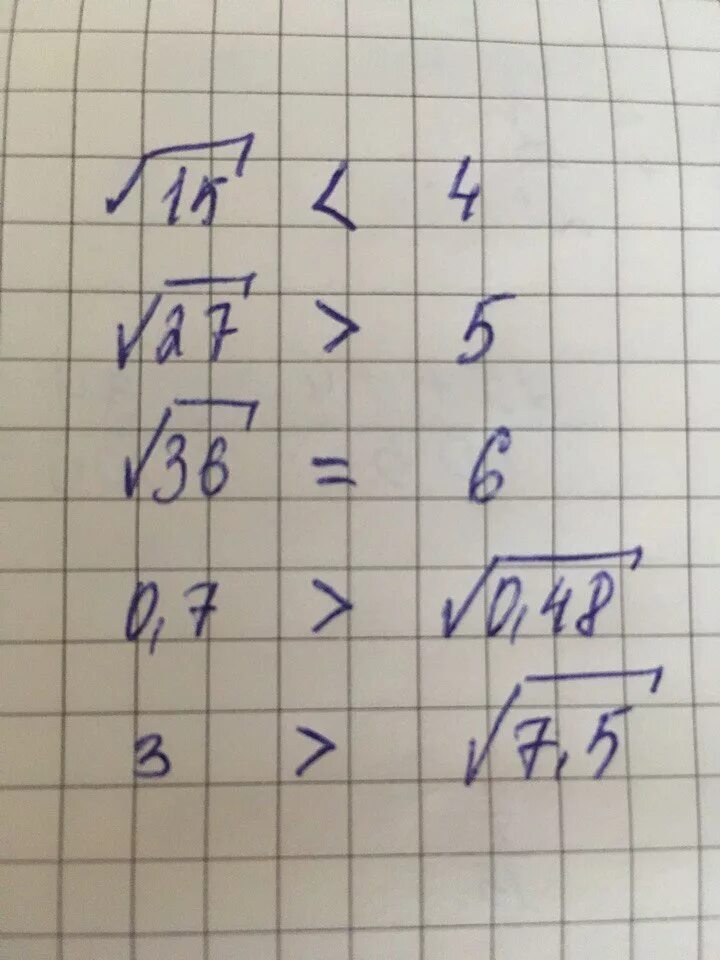 √15 < 4
√27 > 5
√36 = 6
0,7 > √0,48
3 > √7,5